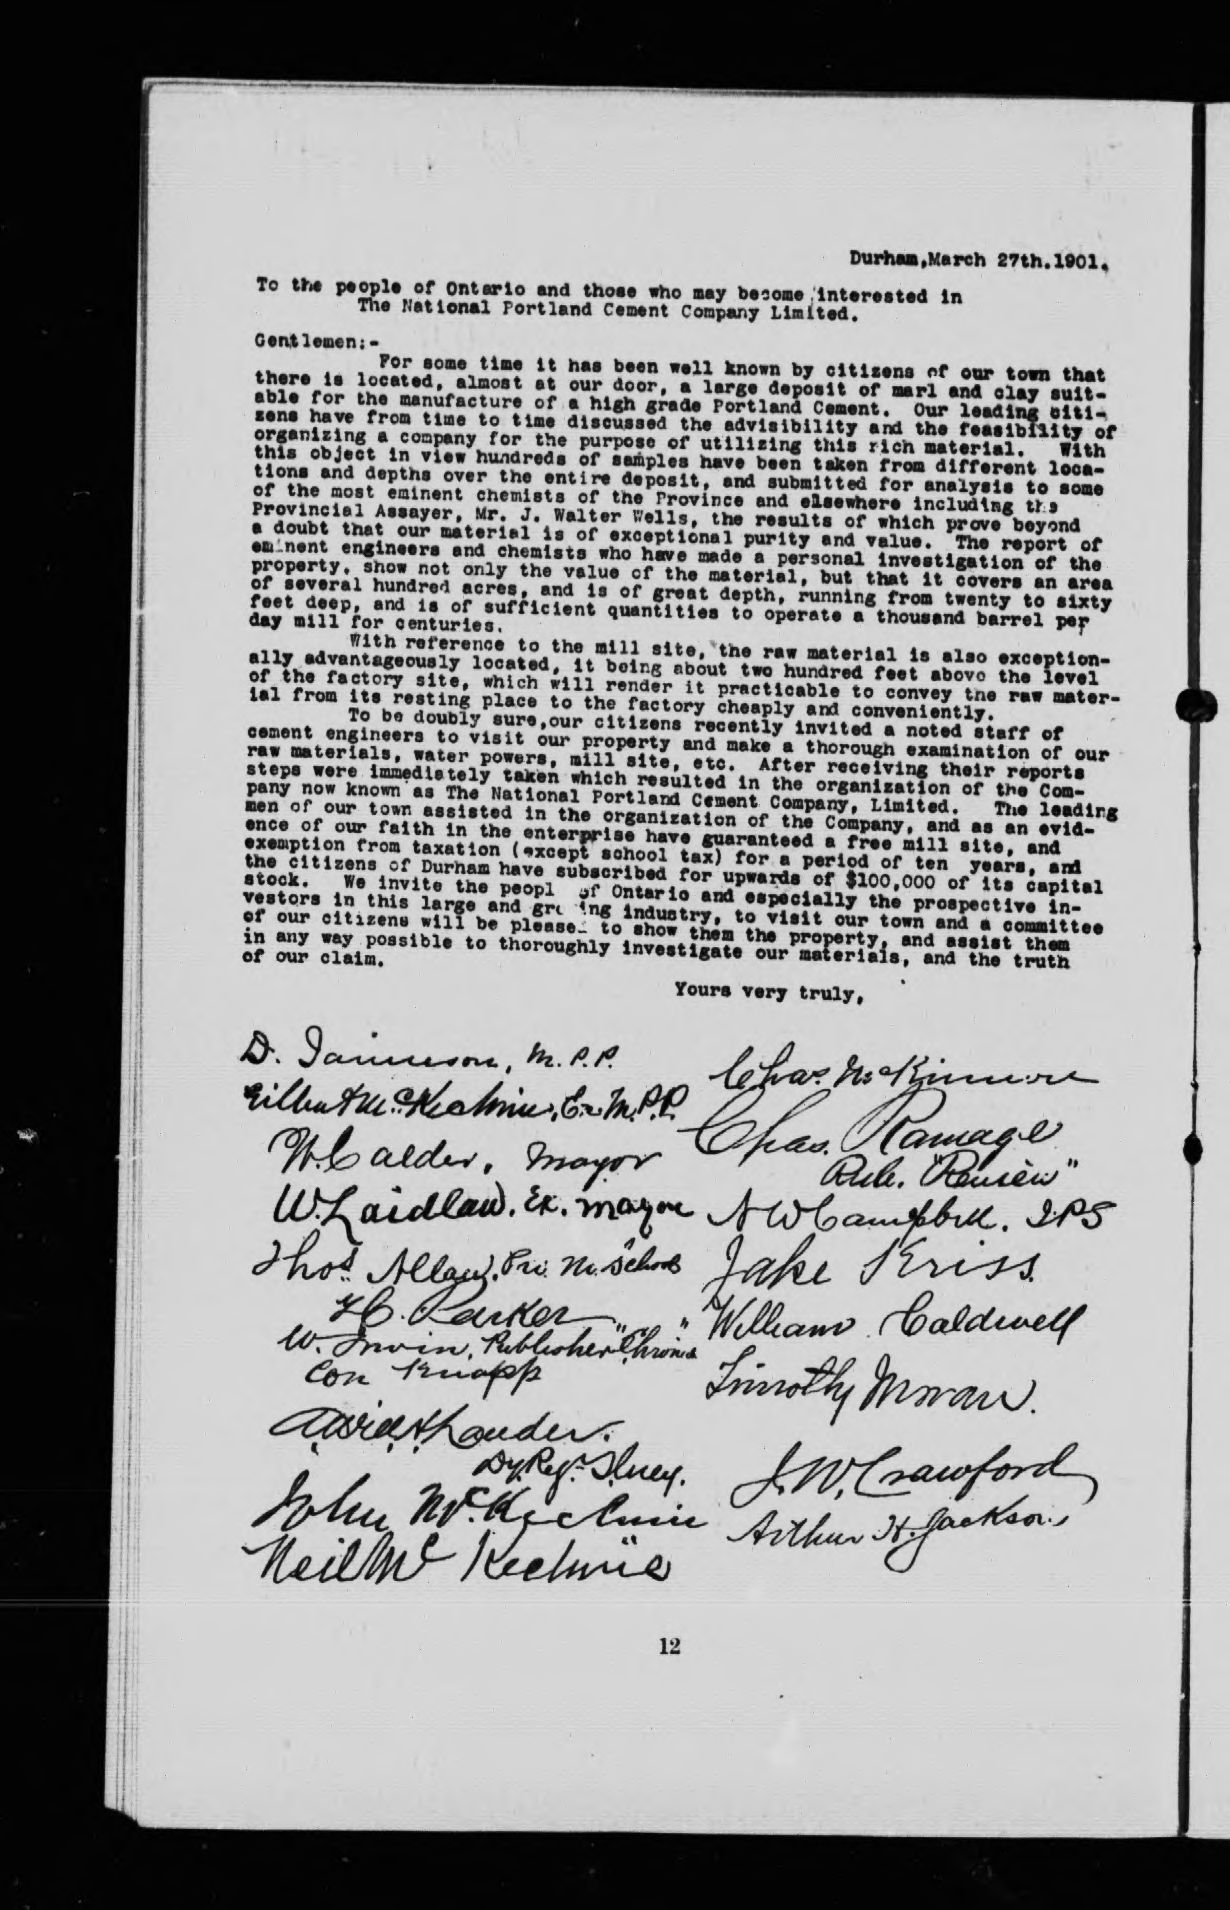 Durham,March 27th.1901.
To the people of Ontario and those who may become interested in
The National Portland Cement Company Limited.
Gentlemen:-
For some time it has been well known by citizens of our town that
there is located, almost at our door, a large deposit of marl and clay suit-
able for the manufacture of a high grade Portland Cement. Our leading citi-
zens have from time to time discussed the advisibility and the feasibility of
organizing a company for the purpose of utilizing this rich material. With
this object in view hundreds of samples have been taken from different loca-
tions and depths over the entire deposit, and submitted for analysis to some
of the most eminent chemists of the Province and elsewhere including the
Provincial Assayer, Mr. J. Walter Wells, the results of which prove beyond
a doubt that our material is of exceptional purity and value. The report of
eminent engineers and chemists who have made a personal investigation of the
property, show not only the value of the material, but that it covers an area
of several hundred acres, and is of great depth, running from twenty to sixty
feet deep, and is of sufficient quantities to operate a thousand barrel per
day mill for centuries.
With reference to the mill site, the raw material is also exception-
ally advantageously located, it being about two hundred feet above the level
of the factory site, which will render it practicable to convey the raw mater-
ial from its resting place to the factory cheaply and conveniently.
To be doubly sure,our citizens recently invited a noted staff of
cement engineers to visit our property and make a thorough examination of our
raw materials, water powers, mill site, etc. After receiving their reports
steps were immediately taken which resulted in the organization of the Com-
pany now known as The National Portland Cement Company, Limited. The leading
men of our town assisted in the organization of the Company, and as an evid-
ence of our faith in the enterprise have guaranteed a free mill site, and
exemption from taxation (except school tax) for a period of ten years, and
the citizens of Durham have subscribed for upwards of $100,000 of its capital
stock. We invite the peopl of Ontario and especially the prospective in-
vestors in this large and growing industry, to visit our town and a committee
of our citizens will be pleased to show them the property, and assist them
in any way possible to thoroughly investigate our materials, and the truth
of our claim.
Yours very truly,
D. Jamieson, M.P.P.
Gilbert McKechnie, Ex M.P.P.
W. Calder, Mayor
W. Laidlaw. Ex. Mayor
Thos. Allan. Pri. M. School
H. Parker
W. Irwin, Publisher "Chronicle"
Con Knapp
A. Lauder.
Dy. Reg.
John McKechnie
Neil McKechnie
Chas. McKinnon
Chas. Ramage
Pub. "Review"
N W Campbell. I.P.S
Jake Kriss.
William Caldwell
Timothy Moran.
J. W. Crawford
Arthur H. Jackson
12